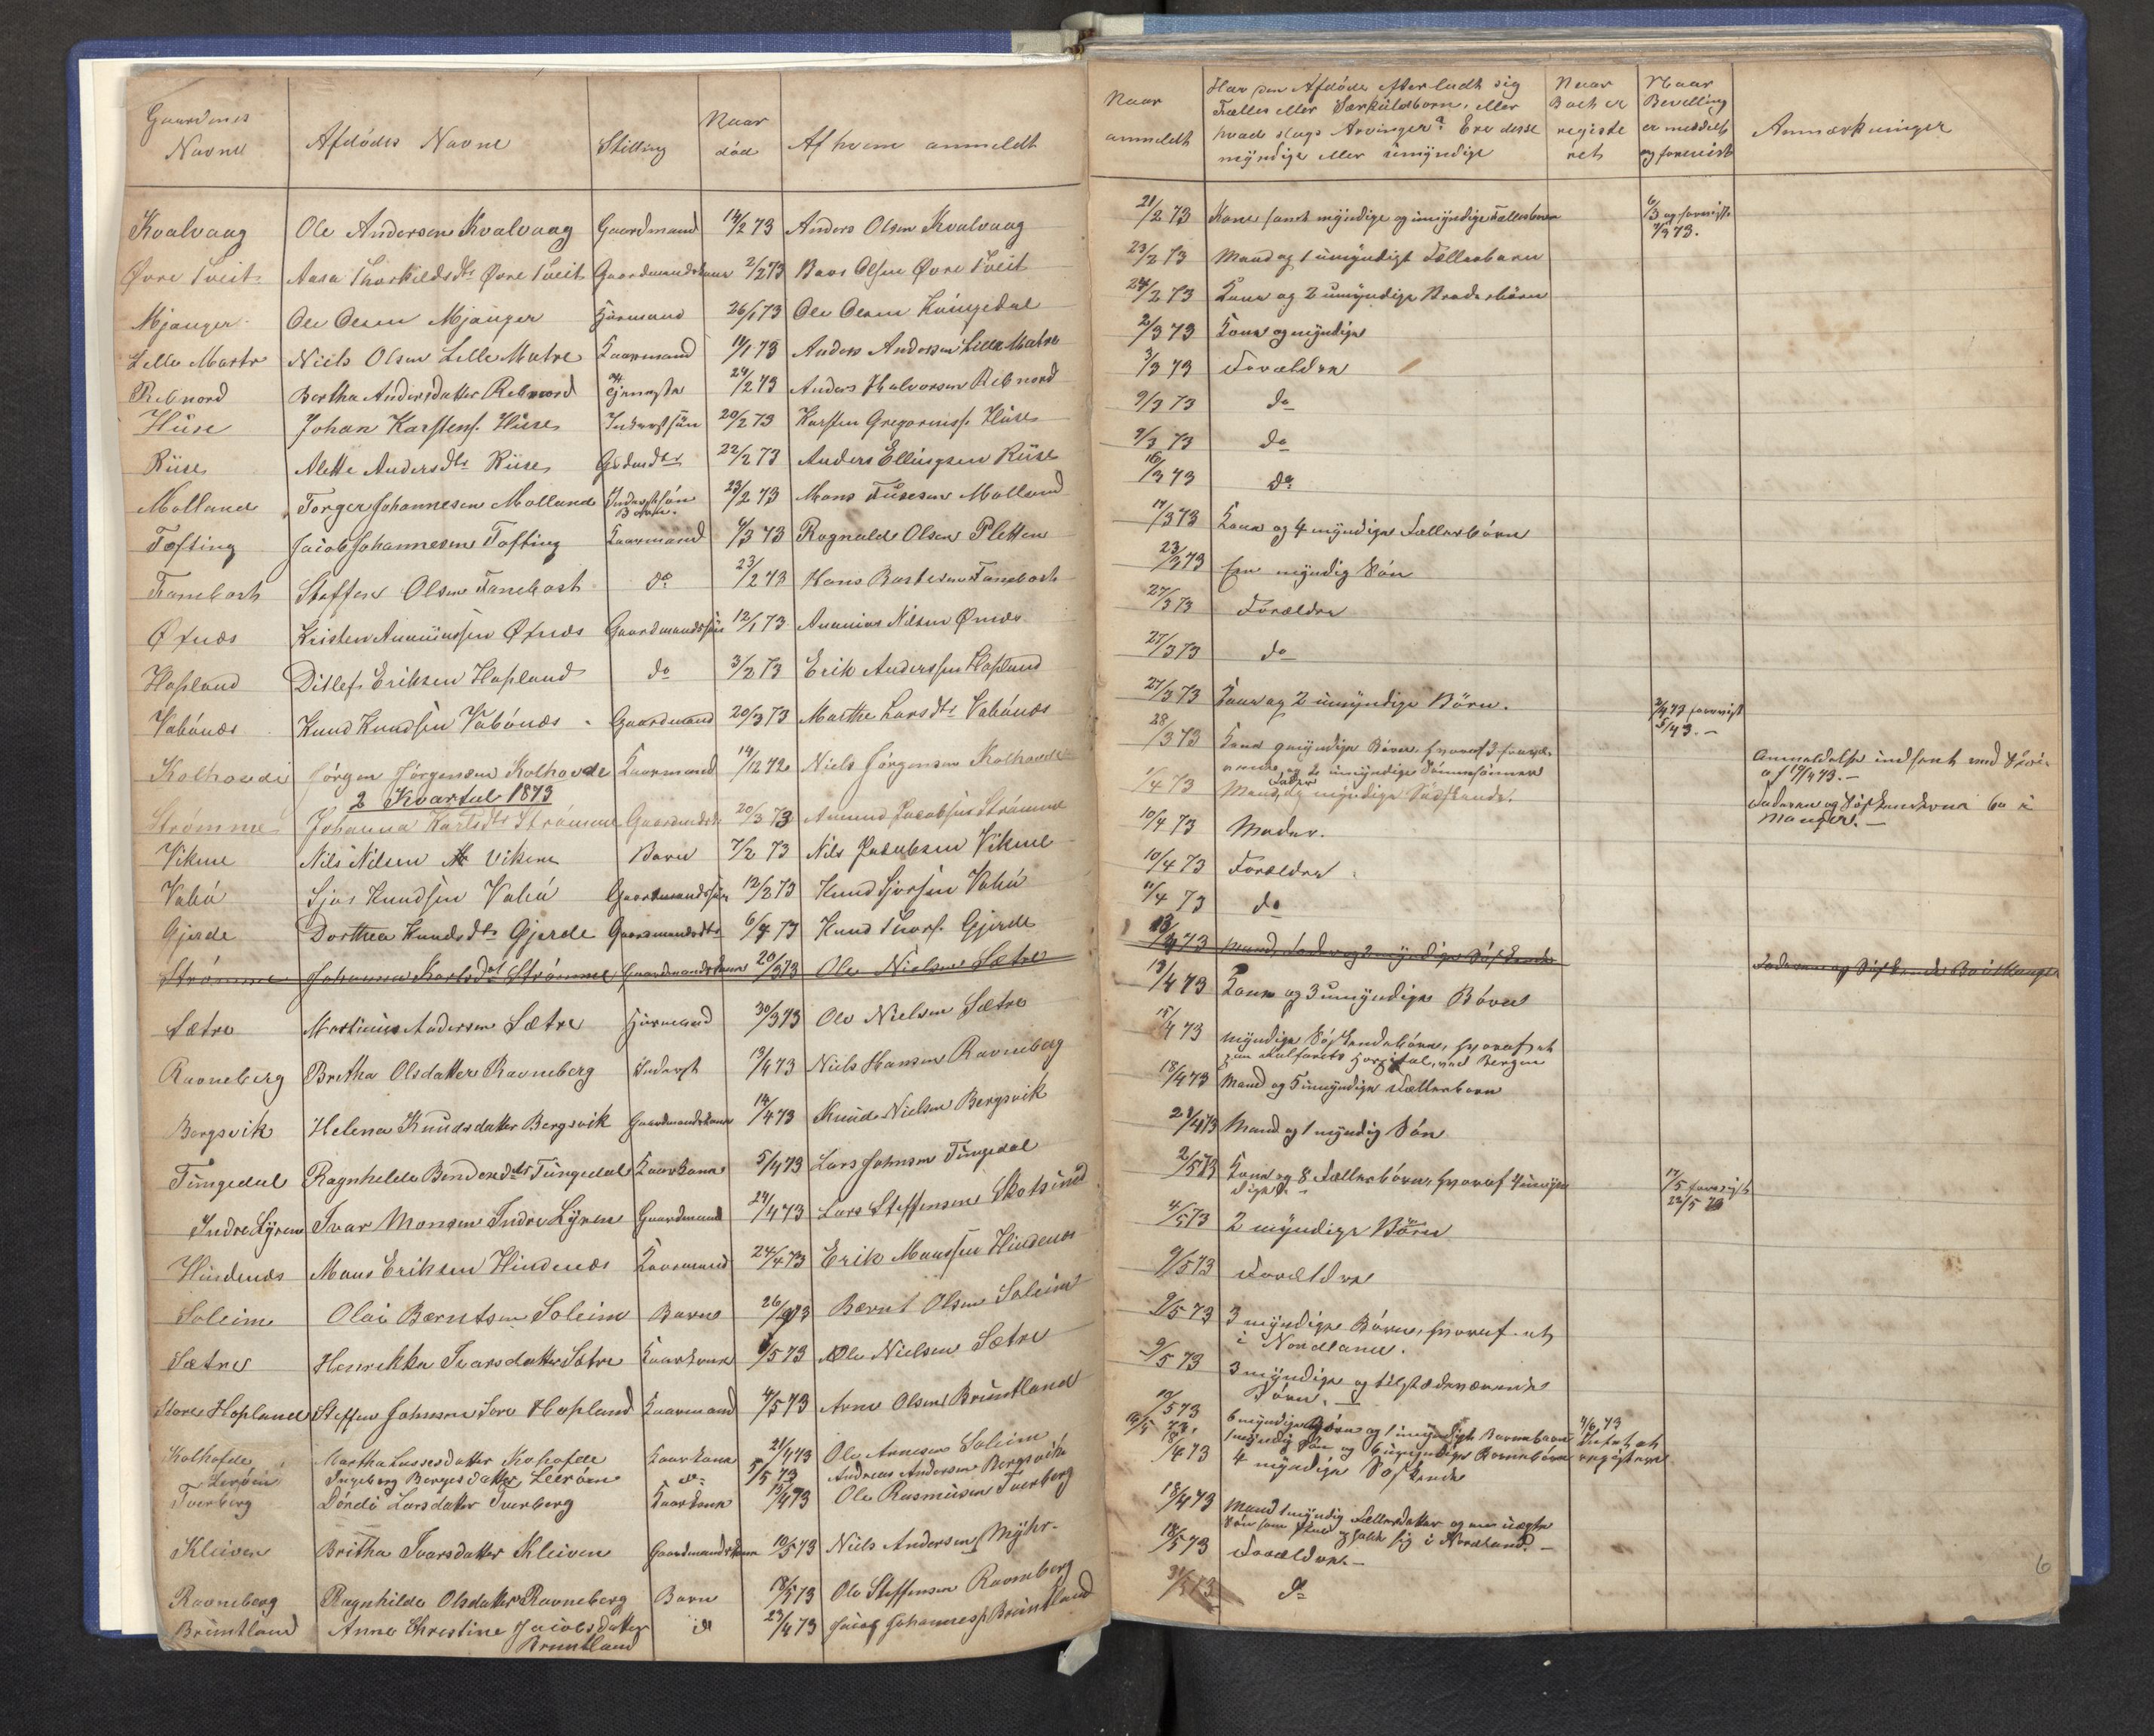 Gaardenes Navne | Afdødes Navne | Stilling | Naar død | Af hvem anmeldt
Kvalvaag | Ole Andersen Kvalvaag | Gaardmand | 14/2 73 | Anders Olsen Kvalvaag
Øvre Tveit | Aasa Thorkildsdtr Øvre Tveit | Gaardmandskone | 2/2 73 | Olsen Øvre Tveit
Mjanger | Ole Olsen Mjanger | Huusmand | 26/1 73 | Ole Olsen
Lille Matre | Niels Olsen Lille Matre | Kaarmand | 11/1 73 | Anders Andersen Lille Matre
Rebnord | Bertha Andersdatter Rebnord | 24/2 73 | Anders Halvorsen Rebnord
Huse | Johan Karstens. Huse | Inderstsøn | 20/2 73 | Karsten Gregoriuss. Huse
Riise | Alette Andersdtr Riise | Grdmdtr | 22/2 73 | Anders Ellingsen Riise
Molland | Torger Johannesen Molland | Inderstsøn Barn. | 23/2 73 | Mons Molland
Tofting | Jacob Johannesen Tofting | Kaarmand | 4/3 73 | Rognald Olsen Pletten
Fanebost | Steffen Olsen Fanebost | do | 23/2 73 | Hans Fanebost
Øxnæs | Kristen Ananiassen Øxnæs | Gaardmandssøn | 12/1 73 | Ananias Nilsen Øxnæs
Hopland | Ditlef Eriksen Hopland | do | 3/2 73 | Erik Anderssen Hopland
Vabønæs | Knud Knudsen Vabønæs | Gaardmand | 20/3 73 | Marthe Larsdtr Vabønæs
Jørgen Jørgensen | Kaarmand | 14/12 72 | Niels Jørgensen
2 Kvartal 1873
Strømme | Johanna Karlsdtr Strømme | 20/3 73 | Amund Jacobsen Strømme
Vikne | Nils Nilsen Vikne | Barn | 7/2 73 | Nils Jacobsen Vikne
Vabø | Sjur Knudsen Vabø | Gaardmandssøn | 12/2 73 | Knud Sjursen Vabø
Gjerde | Dorthea Knudsdtr Gjerde | Gaardmandsdtr | 6/4 73 | Knud Gjerde
Strømme | Johanna Karlsdtr Strømme | Gaardmandskone | 20/3 73 | Ole Nielsen Sætre
Sætre | Martinius Andersen Sætre | Huusmand | 30/3 73 | Ole Nielsen Sætre
Ravneberg | Bretha Olsdatter Ravneberg | Inderst | 13/4 73 | Niels Hansen Ravneberg
Bergsvik | Helena Knudsdatter Bergsvik | Gaardmandskone | 14/4 73 | Knud Nielsen Bergsvik
Tungedal | Ragnhilde Tungedal | Kaarkone | 5/4 73 | Lars Johnsen Tungedal
Indre Lyren | Ivar Monsen Indre Lyren | Gaardmand | 24/4 73 | Lars Steffensen Skotsund
Hindenæs | Mons Eriksen Hindenæs | Kaarmand | 24/4 73 | Erik Monssen Hindenæs
Soleim | Olai Berntsen Soleim | Barn | 26/ 73 | Bernt Olsen Soleim
Sætre | Henrikka Ivarsdatter Sætre | Kaarkone | 1/5 73 | Ole Nielsen Sætre
Store Hopland | Steffen Johnsen Store Hopland | Kaarmand | 4/5 73 | Arne Olsen Bruntland
Martha Lassesdatter | Kaarkone | 21/4 73 | Ole Arnesen Soleim
Lerøen | Ingeborg Børgesdatter Leerøen | do | 5/5 73 | Andreas Andersen Bergsvik
Tverberg | Larsdatter Tverberg | Kaarkone | 15/4 73 | Ole Rasmusen Tverberg
Kleiven | Britha Ivarsdatter Kleiven | Gaardmandskone | 10/5 73 | Niels Andersen Myhr
Ravneberg | Ragnhilde Olsdatter Ravneberg | Barn | 18/5 73 | Ole Steffensen Ravneberg
Bruntland | Anne Christine Jacobsdatter | d | 23/4 73 | Jacob Johannesen Bruntland
Bruntland
Naar anmeldt | Har den Afdøde efterladt sig | Naar | Naar
Fælles eller Særkulsbørn, eller | Boet er | Bevilling
hvad slags Arvinger? Ere disse | registeret | er meddelt | Anmærkninger
myndige eller umyndige | og forevist
21/2 73 | Kone samt myndige og umyndige Fællesbørn | 6/3 og forevist
7/3 73.
23/2 73 | Mand og 1 umyndigt Fællesbarn
24/2 73 | Kone og 2 umyndige
2/3 73 | Kone og myndige
3/3 73 | Forældre
9/3 73 | do
9/3 73 | do
16/3 73 | do
17/3 73 | Kone og 4 myndige Fællesbørn
23/3 73 | En myndig Søn
27/3 73 | Forældre
27/3 73 | do
27/3 73 | Kone og 2 umyndige Børn. | 2/4 73 forevist
5/4 73. -
28/3 73 | Kone myndige Børn, hvoraf 3 | Anmeldelse indsent med
umyndige Sønnesønner
1/4 73 | Mand, Fader og myndige Søskende. | Faderen og Søskenderne bo i
Manger. -
10/4 73 | Moder.
10/4 73 | Forældre
11/4 73 | do
13/4 73 | Mand, Fader og 2 myndige Søskende | Faderen og Søskende Bo i Manger
13/4 73 | Kone og 3 umyndige Børn
15/4 73 | myndige Søskendebørn, hvoraf et
Hospital, ved Bergen
18/4 73 | Mand og 5 umyndige Fællesbørn
21/4 73 | Mand og 1 myndig Søn
2/5 73 | Kone og 8 Fællesbørn, hvoraf 4 umyndige. - | 17/5 forevist
22/5 73
4/5 73 | 2 myndige Børn
9/5 73 | Forældre
9/5 73 | 3 myndige Børn, hvoraf et
i Nordland.
9/5 73 | 3 myndige og tilstedeværende
Børn. -
13/5 73 | 6 myndige Børn og 1 umyndigt Barnebarn | 4/6 73
16/5 73. | 1 myndig Søn og 6 umyndige Børnebørn
18/4 73 | 4 myndige Søskende
18/4 73 | Mand 1 myndig Fællesdatter og en uægte
Søn som skal opholde sig i Nordland. -
18/5 73 | Forældre. -
31/5 73 | do
6